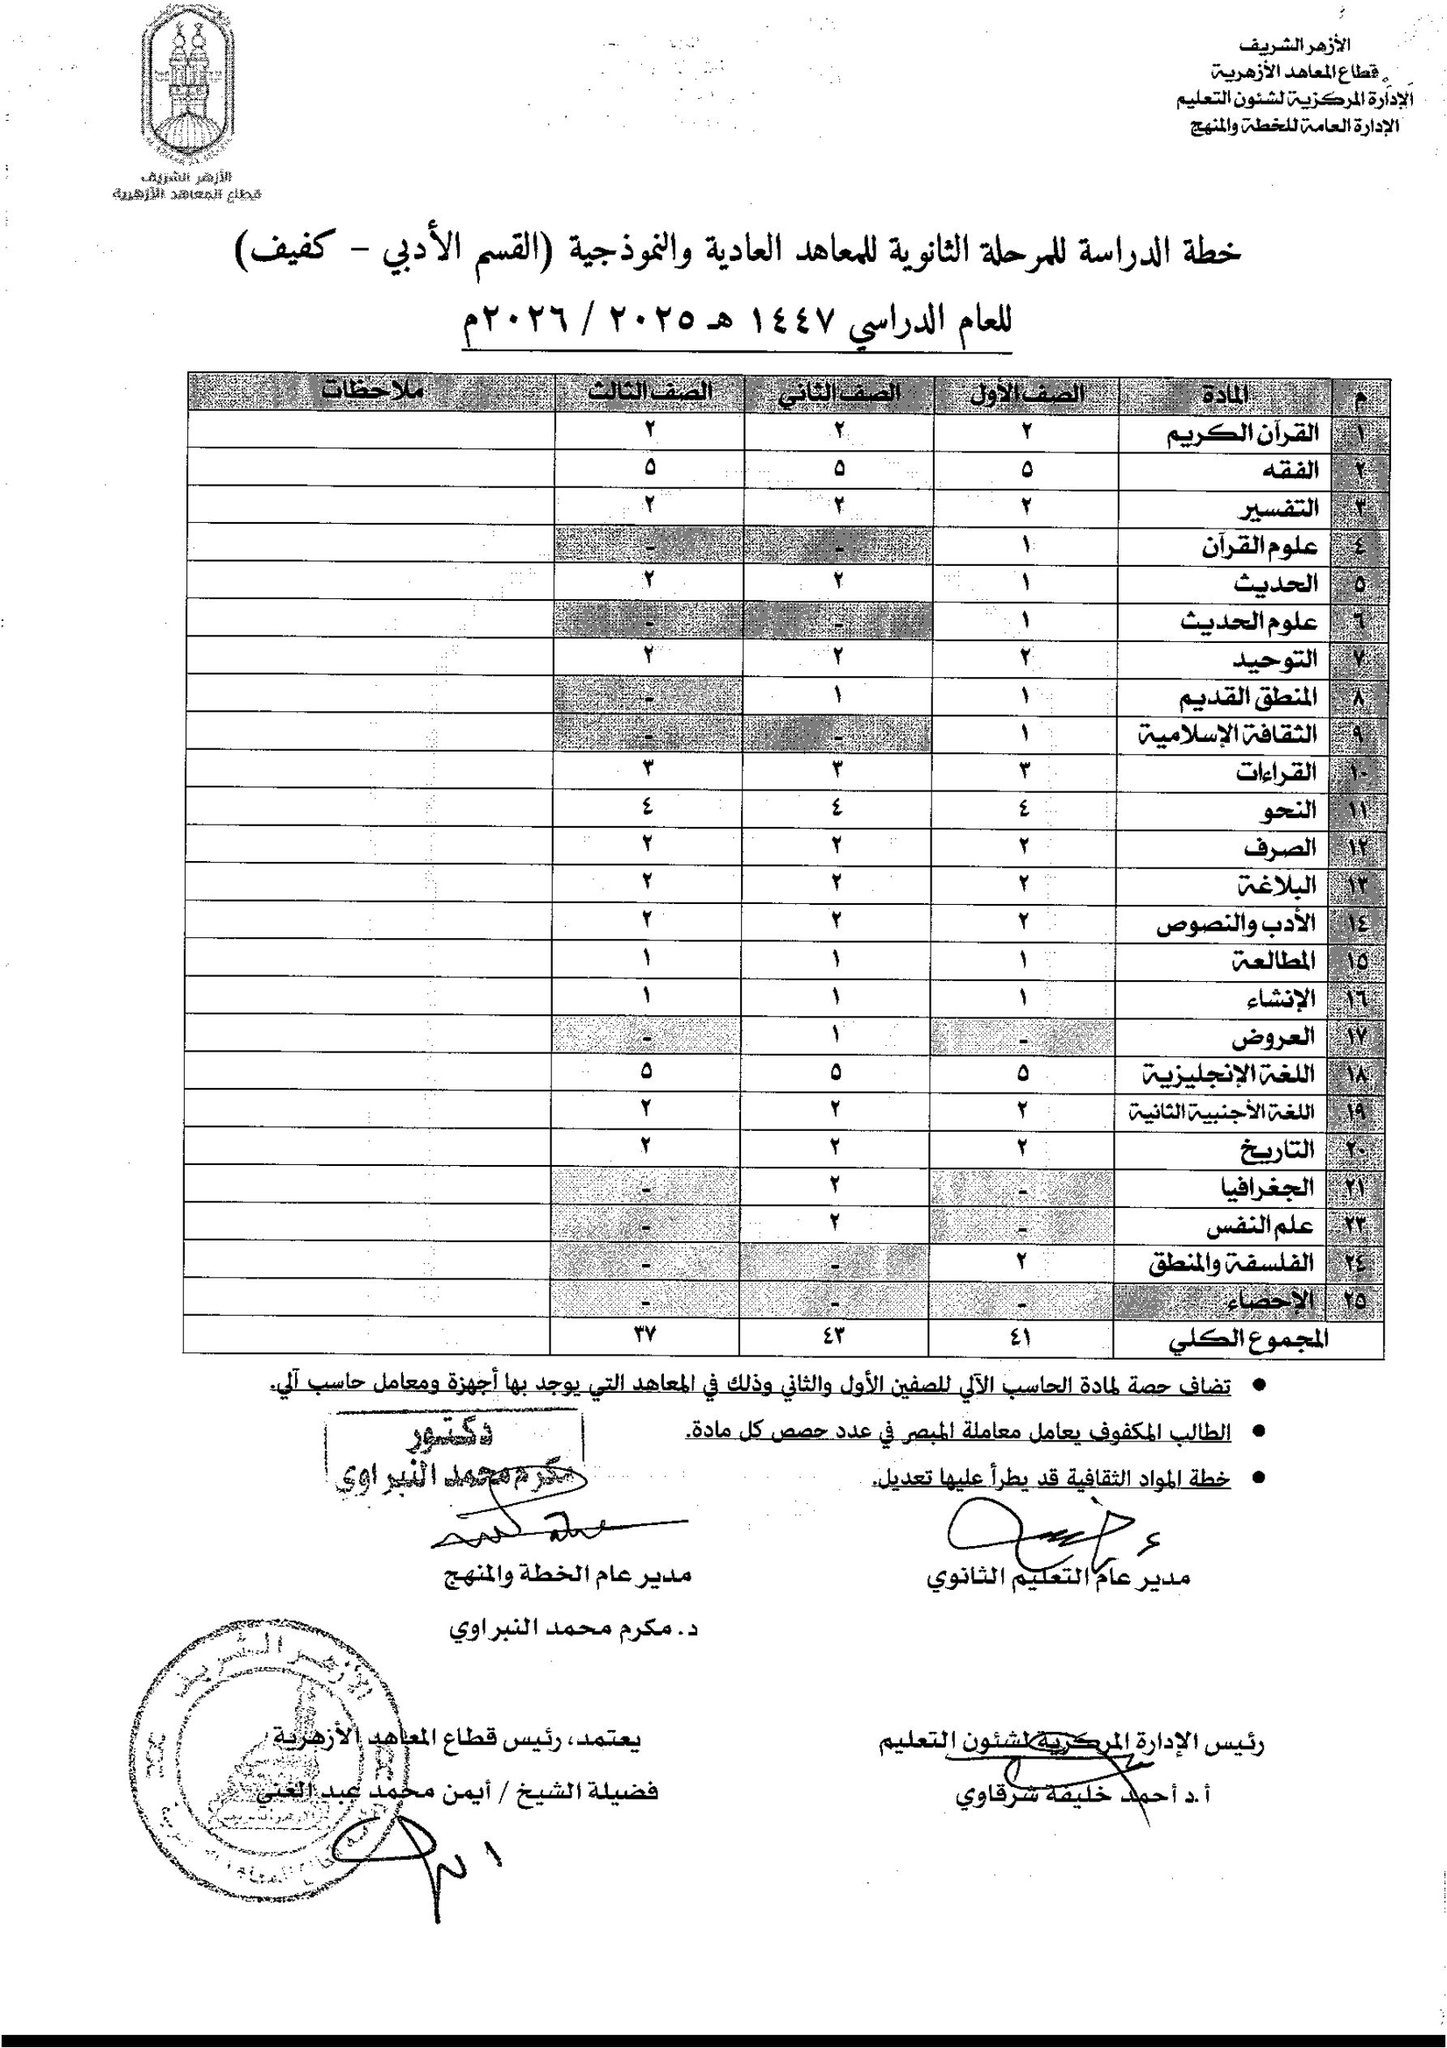 الأزهر الشريف
قطاع المعاهد الأزهرية
الإدارة المركزية لشئون التعليم
الإدارة العامة للخطة والمنهج
الأزهر الشريف
قطاع المعاهد الأزهرية
خطة الدراسة للمرحلة الثانوية للمعاهد العادية والنموذجية (القسم الأدبي - كفيف)
للعام الدراسي ١٤٤٧ هـ ٢٠٢٥ / ٢٠٢٦م
م المادة الصف الأول الصف الثاني الصف الثالث ملاحظات
١ القرآن الكريم ٢ ٢ ٢
٢ الفقه ٥ ٥ ٥
٣ التفسير ٢ ٢ ٢
٤ علوم القرآن ١ - -
٥ الحديث ١ ٢ ٢
٦ علوم الحديث ١ - -
٧ التوحيد ٢ ٢ ٢
٨ المنطق القديم ١ ١ -
٩ الثقافة الإسلامية ١ - -
١٠ القراءات ٣ ٣ ٣
١١ النحو ٤ ٤ ٤
١٢ الصرف ٢ ٢ ٢
١٣ البلاغة ٢ ٢ ٢
١٤ الأدب والنصوص ٢ ٢ ٢
١٥ المطالعة ١ ١ ١
١٦ الإنشاء ١ ١ ١
١٧ العروض - ١ -
١٨ اللغة الإنجليزية ٥ ٥ ٥
١٩ اللغة الأجنبية الثانية ٢ ٢ ٢
٢٠ التاريخ ٢ ٢ ٢
٢١ الجغرافيا - ٢ -
٢٣ علم النفس - ٢ -
٢٤ الفلسفة والمنطق ٢ - -
٢٥ الإحصاء - - -
المجموع الكلي ٤١ ٤٣ ٣٧
• تضاف حصة لمادة الحاسب الآلي للصفين الأول والثاني وذلك في المعاهد التي يوجد بها أجهزة ومعامل حاسب آلي.
• الطالب المكفوف يعامل معاملة المبصر في عدد حصص كل مادة.
• خطة المواد الثقافية قد يطرأ عليها تعديل.
دكتور
مكرم محمد النبراوي
مدير عام التعليم الثانوي
مدير عام الخطة والمنهج
د. مكرم محمد النبراوي
رئيس الإدارة المركزية لشئون التعليم
أ.د أحمد خليفة شرقاوي
يعتمد، رئيس قطاع المعاهد الأزهرية
فضيلة الشيخ / أيمن محمد عبد الغني
الأزهر الشريف